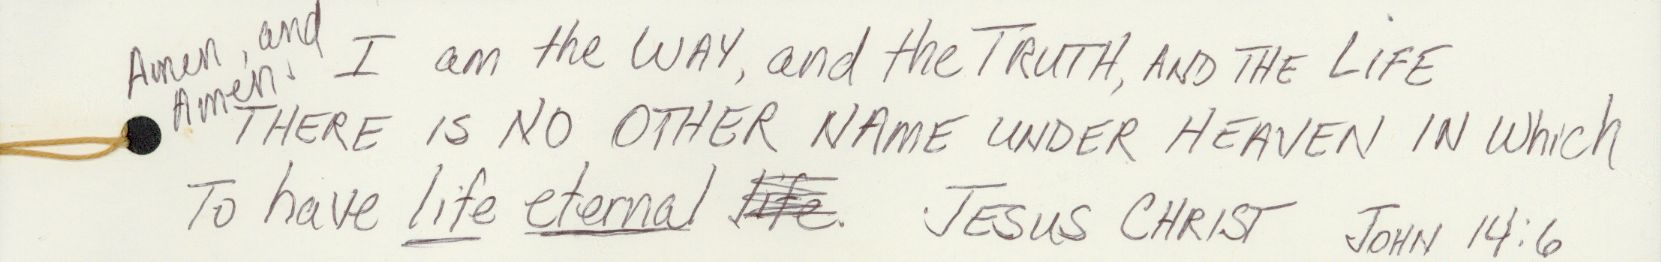 Amen, and
Amen!
I am the WAY, and the TRUTH, AND THE LIFE
THERE IS NO OTHER NAME UNDER HEAVEN IN Which
To have life eternal life. JESUS CHRIST JOHN 14:6